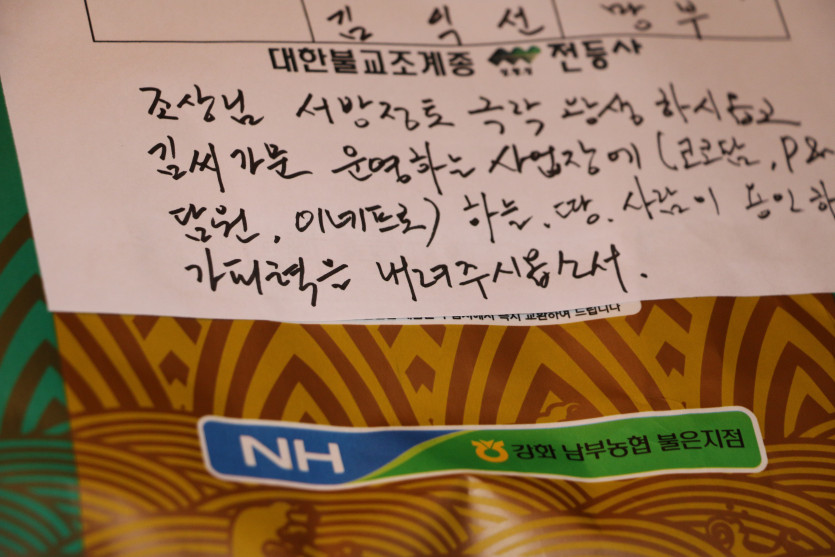 김 익 선 망 부
대한불교조계종 전등사
조상님 서방정토 극락 왕생 하시옵고
김씨가문 운영하는 사업장에 (코로담, P&
담원, 이네프로) 하늘. 땅. 사람이 용인하
가피력을 내려주시옵소서.
즉시 교환하여 드립니다
NH 강화 남부농협 불은지점